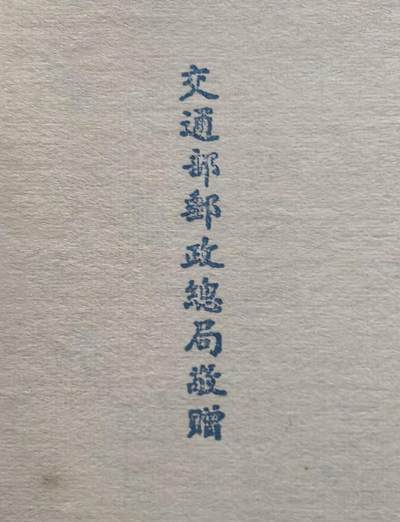 交通部郵政總局敬贈